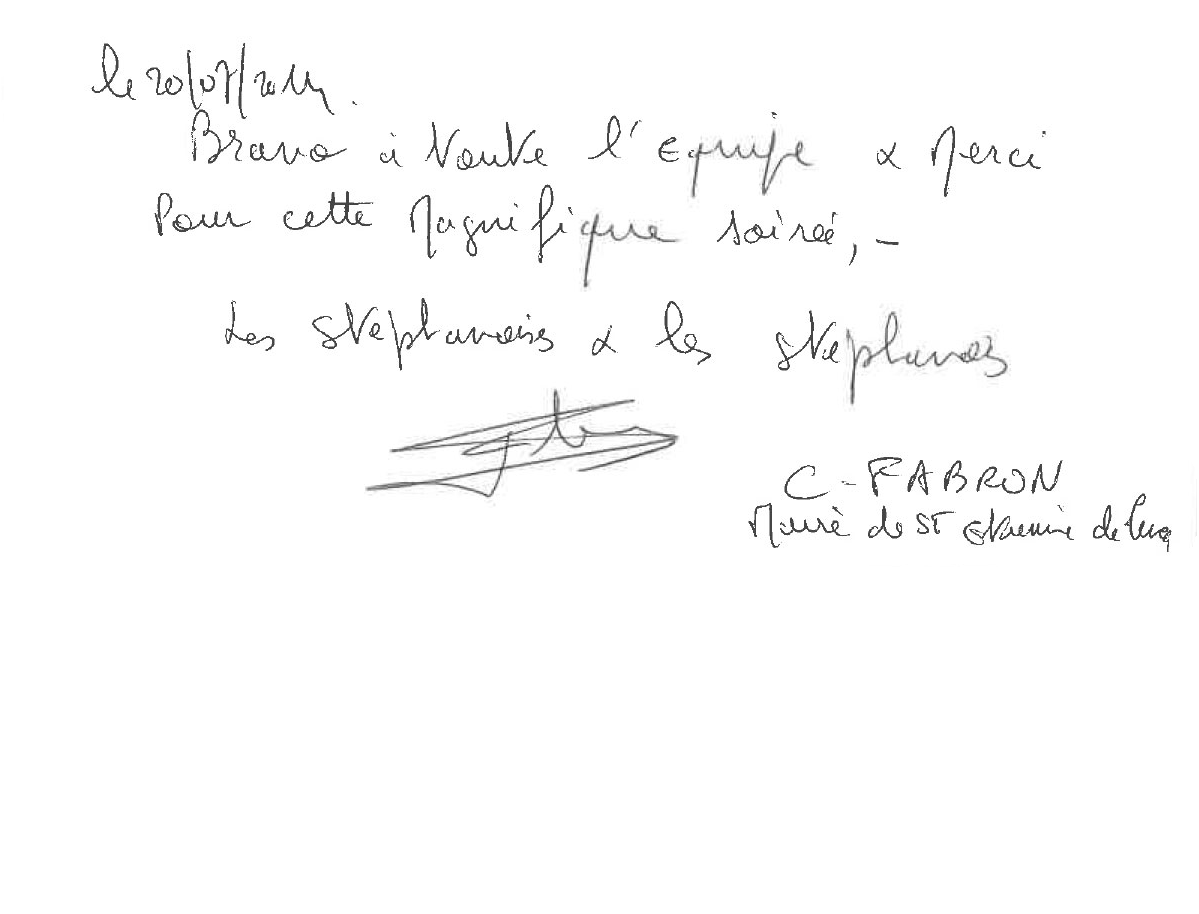 le 20/07/2014.
Bravo à toute l'équipe & Merci
Pour cette Magnifique soirée, -
Les stéphanois & les stéphanoises
C - FABRON
Maire de ST etienne de